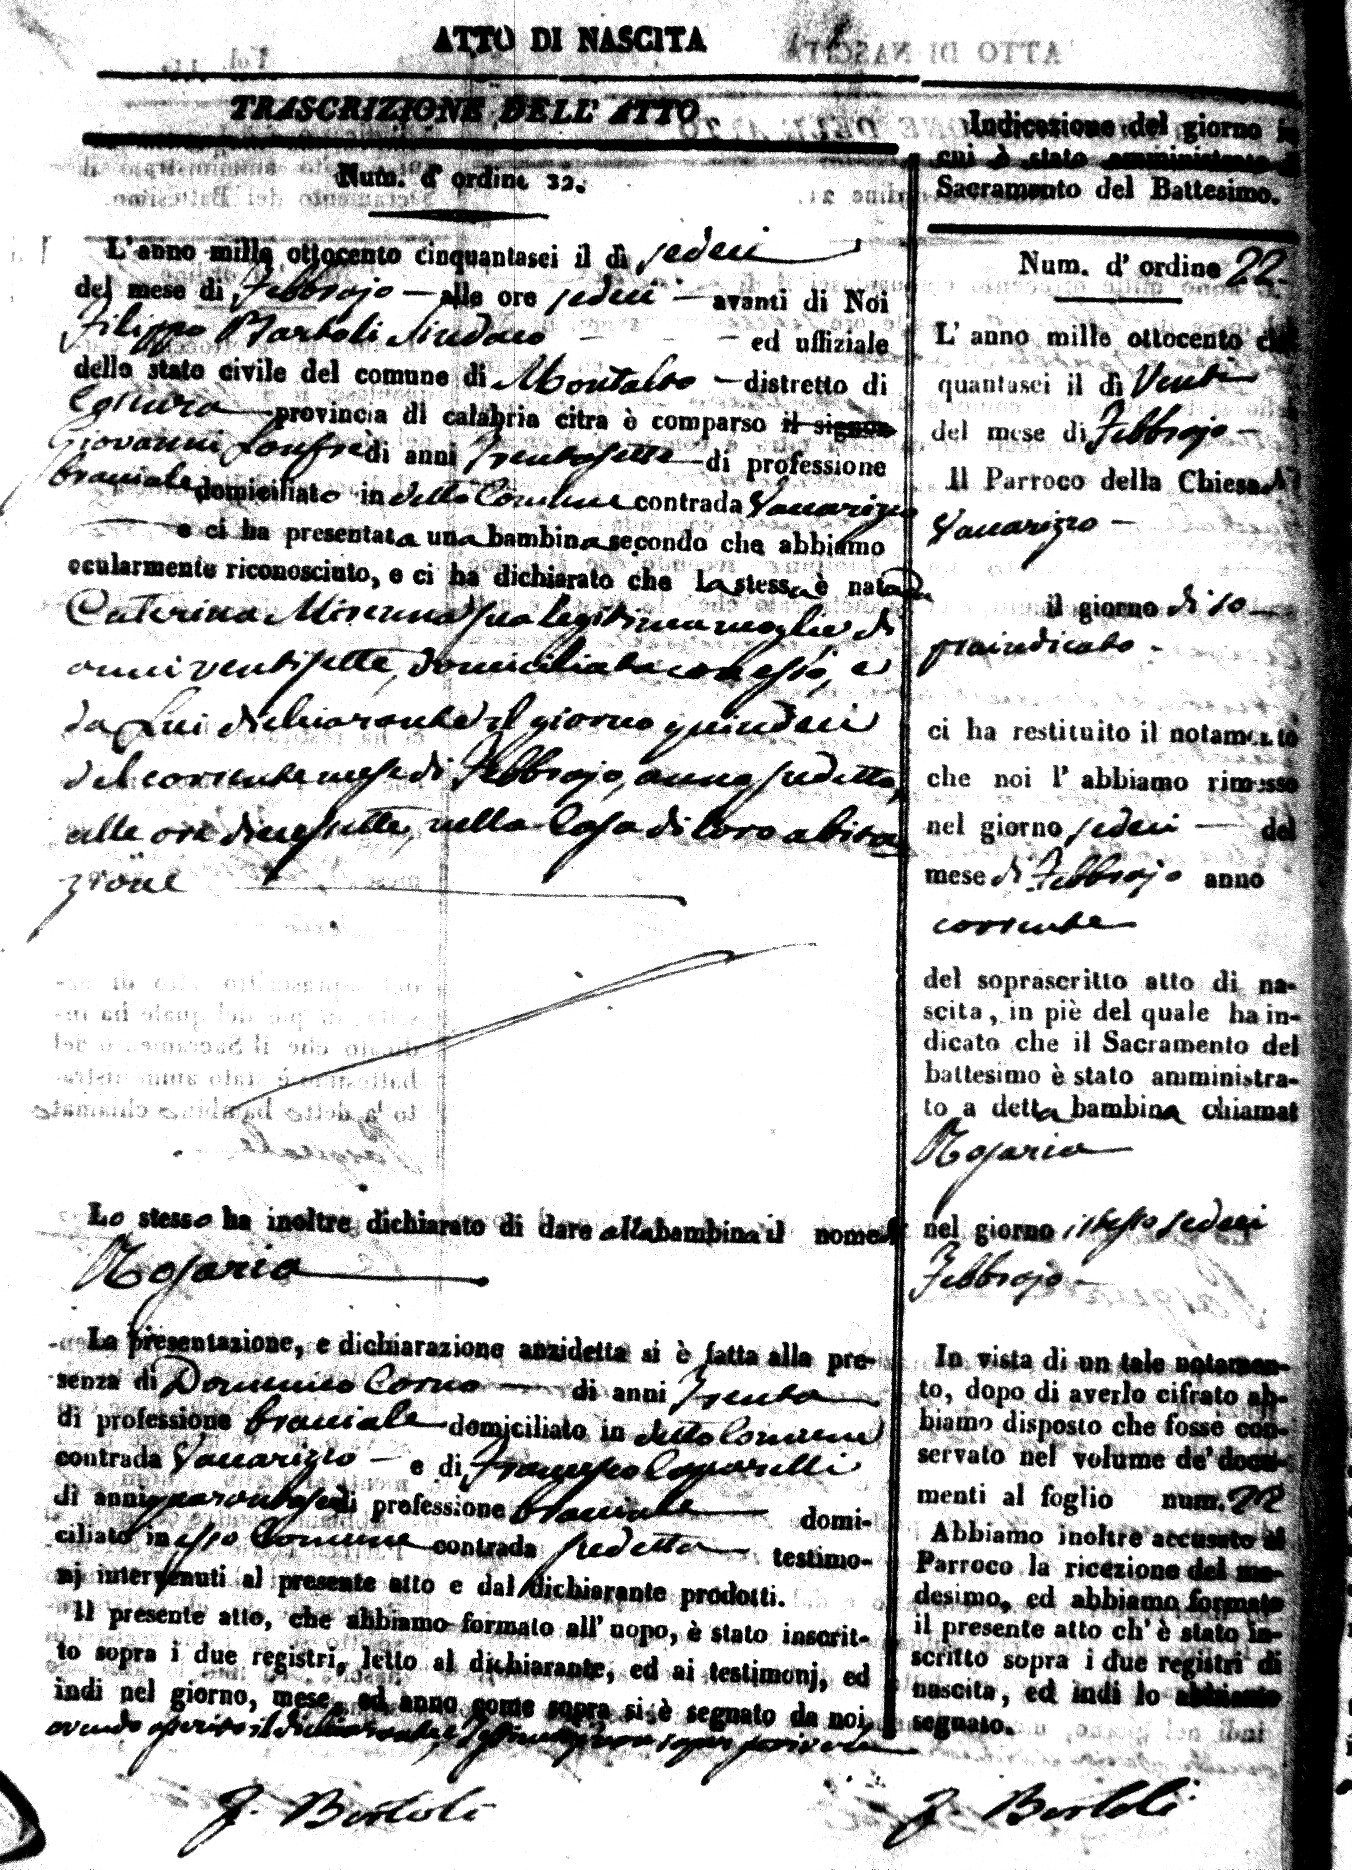 ATTO DI NASCITA
TRASCRIZIONE DELL' ATTO
Num. d' ordine 32.
L'anno mille ottocento cinquantasei il dì sedeci
del mese di Febbrajo alle ore sedeci avanti di Noi
Filippo Bartoli Sindaco ed uffiziale
dello stato civile del comune di Montalto distretto di
Cosenza provincia di calabria citra è comparso il signor
Giovanni di anni Trentasette di professione
bracciale domiciliato in detto Comune contrada Vaccarizzo
e ci ha presentata una bambina secondo che abbiamo
ocularmente riconosciuto, e ci ha dichiarato che la stessa è nata da
Caterina sua legittima moglie di
anni ventisette, domiciliata con esso, e
da Lui dichiarante il giorno quindeci
del corrente mese di Febbrajo, anno sudetto,
alle ore diecessette, nella Casa di loro abita
zione
Lo stesso ha inoltre dichiarato di dare alla bambina il nome di
Rosaria
La presentazione, e dichiarazione anzidetta si è fatta alla pre-
senza di Domenico Corno di anni Trenta
di professione bracciale domiciliato in detto Comune
contrada Vaccarizzo e di Francesco Caparelli
di anni quarantasei di professione bracciale domi-
ciliato in esso Comune contrada sudetta testimo-
nj intervenuti al presente atto e dal dichiarante prodotti.
Il presente atto, che abbiamo formato all' uopo, è stato inscrit-
to sopra i due registri, letto al dichiarante, ed ai testimonj, ed
indi nel giorno, mese, ed anno come sopra si è segnato da noi
avendo asserito il dichiarante, e Testimonj non saper scrivere
F. Bartoli
Indicazione del giorno in
cui è stato amministrato il
Sacramento del Battesimo.
Num. d' ordine 22.
L' anno mille ottocento cin
quantasei il dì Venti
del mese di Febbrajo
Il Parroco della Chiesa di
Vaccarizzo
il giorno di so
praindicato.
ci ha restituito il notamento
che noi l' abbiamo rimesso
nel giorno sedeci del
mese di Febbrajo anno
corrente
del soprascritto atto di na-
scita, in piè del quale ha in-
dicato che il Sacramento del
battesimo è stato amministra-
to a detta bambina chiamat
Rosaria
nel giorno istesso sedeci
Febbrajo
In vista di un tale notamen-
to, dopo di averlo cifrato ab-
biamo disposto che fosse con-
servato nel volume de' docu-
menti al foglio num. 22
Abbiamo inoltre accusato al
Parroco la ricezione del me-
desimo, ed abbiamo formato
il presente atto ch' è stato in-
scritto sopra i due registri di
nascita, ed indi lo abbiamo
segnato.
F. Bartoli